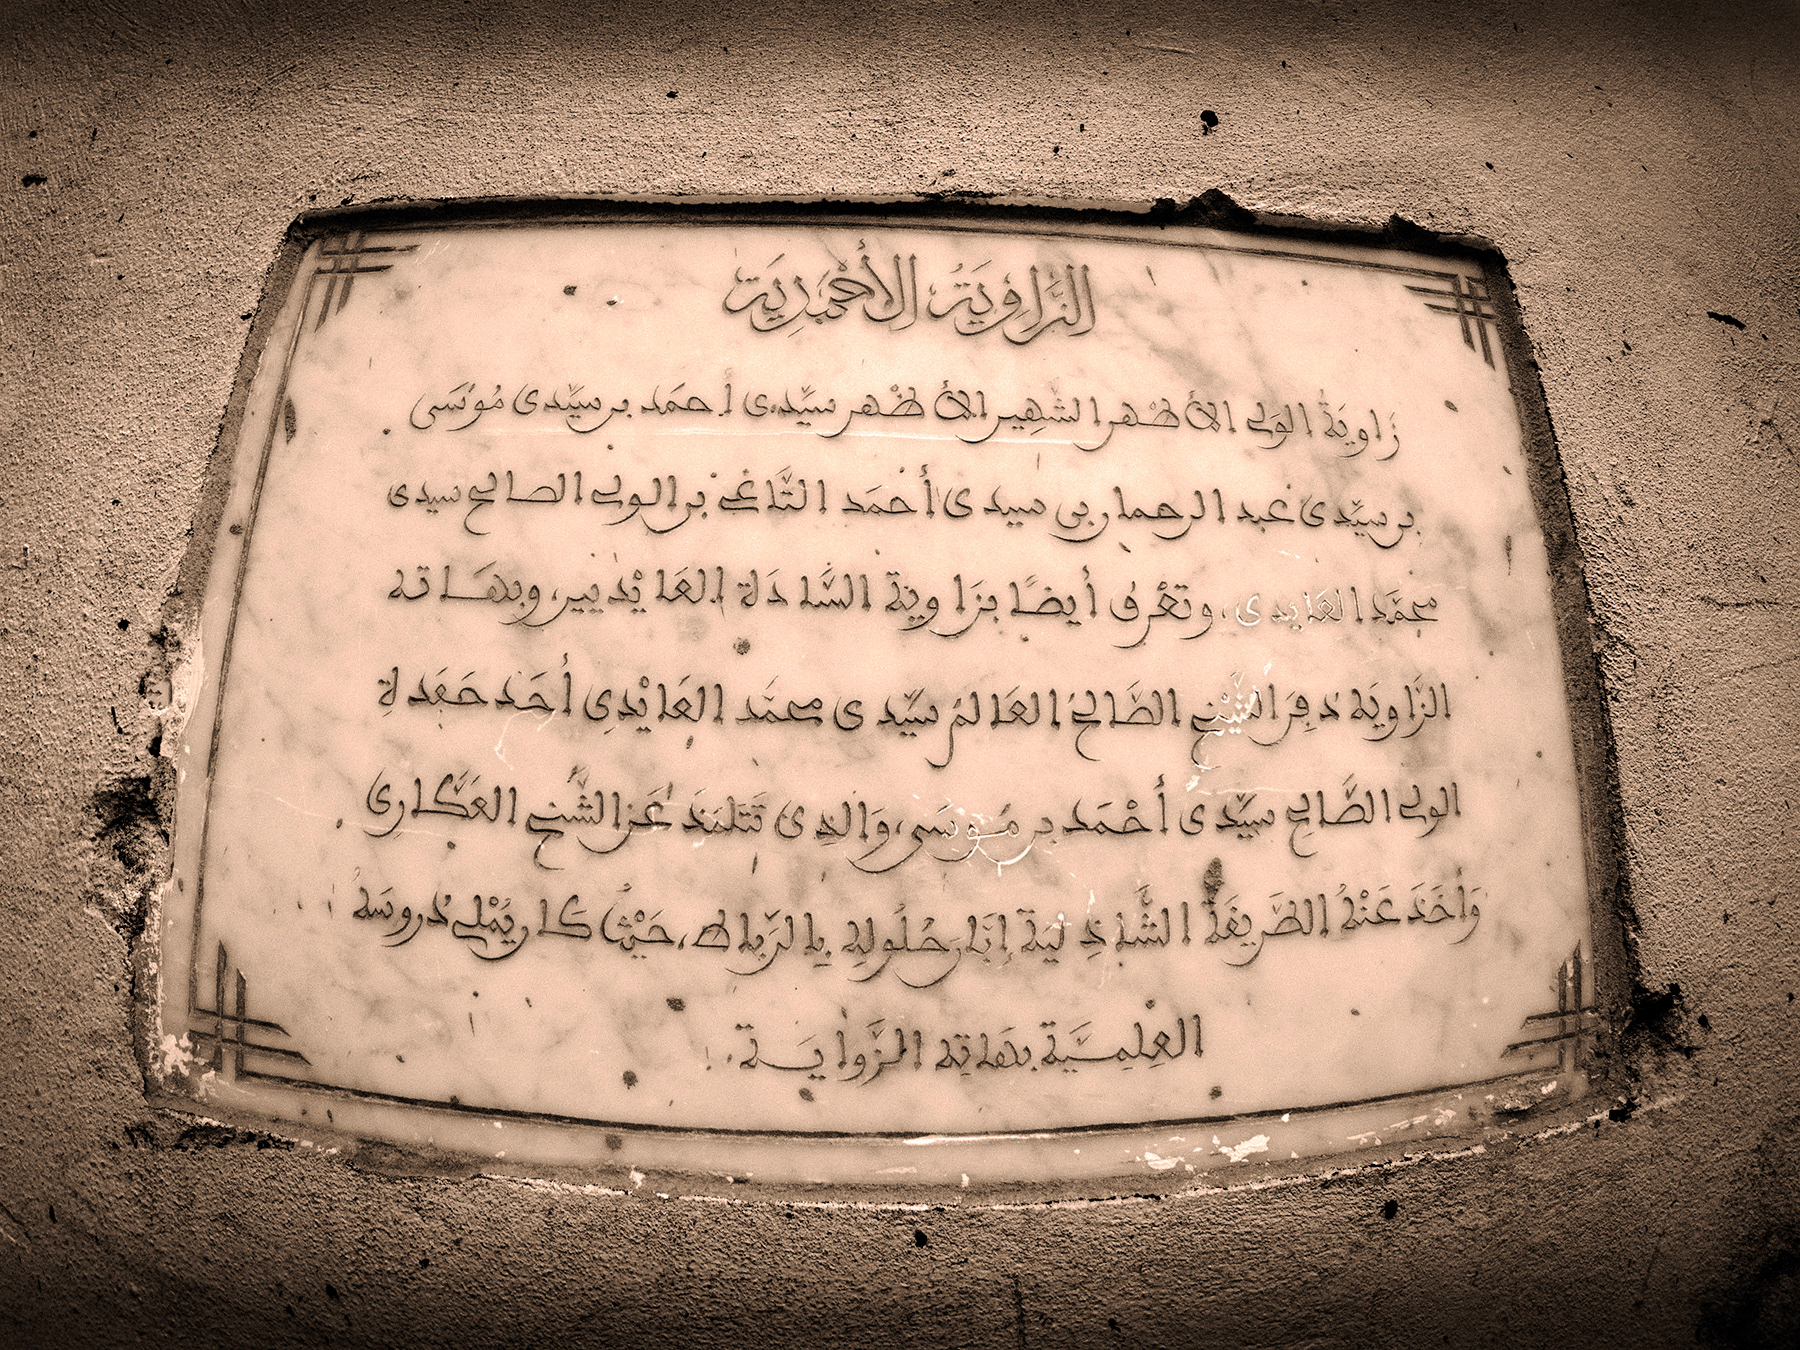 الزَّاوِيَةُ الأَحْمَدِيَّة
زَاوِيَةُ الولي الأطْهر الشَّهِير الأظْهر سيِّدي أحمَد بن سيِّدي مُوسَى
بن سيِّدي عبد الرحمان بن سيدي أحْمَد التَّاغي بن الولي الصالح سيدي
محمَّد العَايدي، وتعْرف أيضًا بزَاوية السَّادَة العَايْديين، وبهَاته
الزَّاويَة دفِنَ الشَّيْخ الصَّالحُ العَالمُ سيِّدي محمَّد العَايْدِي أحَد حَفَدة
الولي الصَّالح سيِّدي أحْمَد بن مُوسَى، وَالذي تَتَلمَذ عَن الشَّيْخ العَكَّارِي
وَأخَذَ عَنْهُ الطَّريقَةَ الشَّاذِليَة إبَّانَ حُلُولِهِ بِالرِّبَاط، حَيْثُ كَان يُمْلي دُروسَهُ
العِلمِيَّة بهَاتِه الزَّوايَة.